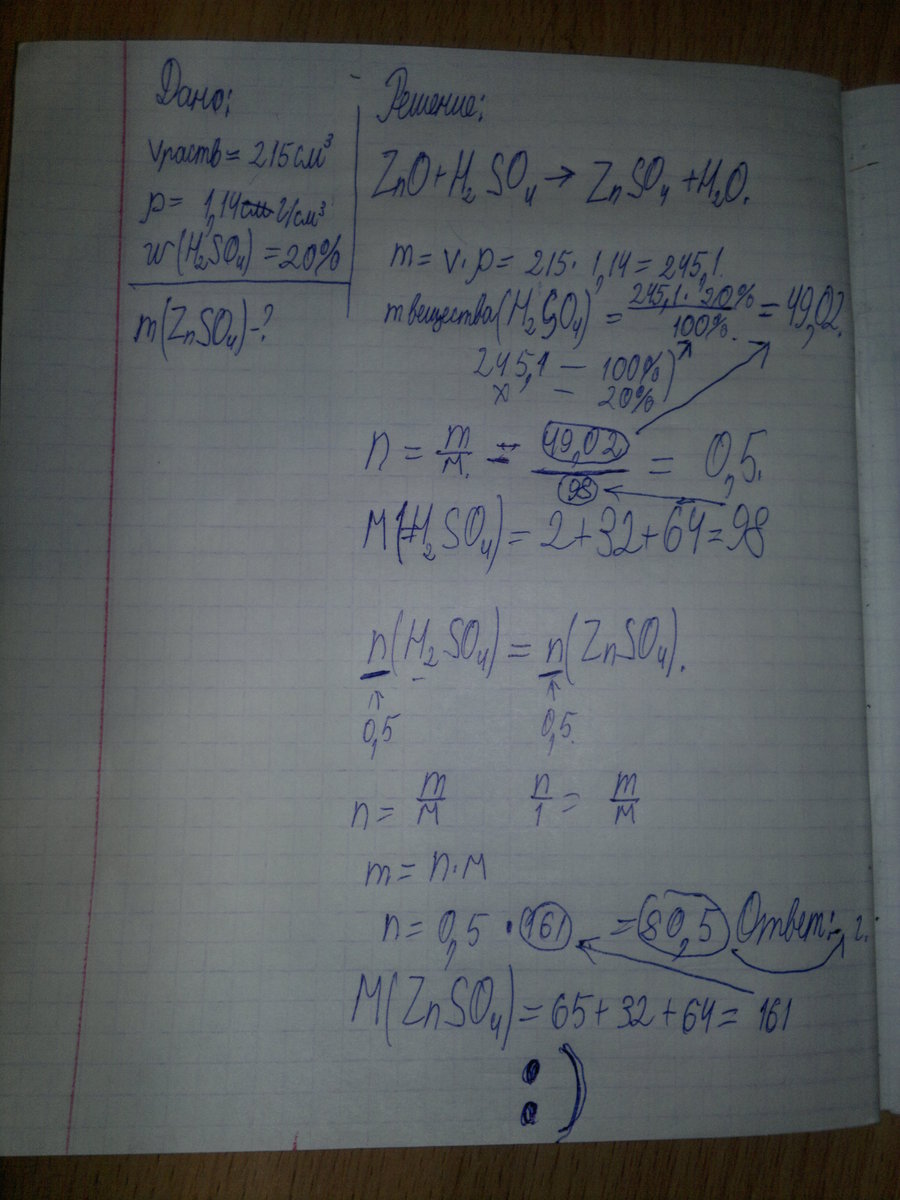 Дано:
Vраств = 215 см³
ρ = 1,14 см г/см³
w(H₂SO₄) = 20%
m(ZnSO₄) - ?
Решение:
ZnO + H₂SO₄ → ZnSO₄ + H₂O.
m = V · ρ = 215 · 1,14 = 245,1.
m вещества (H₂SO₄) = 245,1 · 20% / 100% = 49,02.
245,1 — 100%
x — 20%
n = m/M = 49,02 / 98 = 0,5.
M(H₂SO₄) = 2 + 32 + 64 = 98
n(H₂SO₄) = n(ZnSO₄).
↑ ↑
0,5 0,5.
n = m/M n/1 = m/M
m = n · M
n = 0,5 · 161 = 80,5 Ответ: г.
M(ZnSO₄) = 65 + 32 + 64 = 161
:)